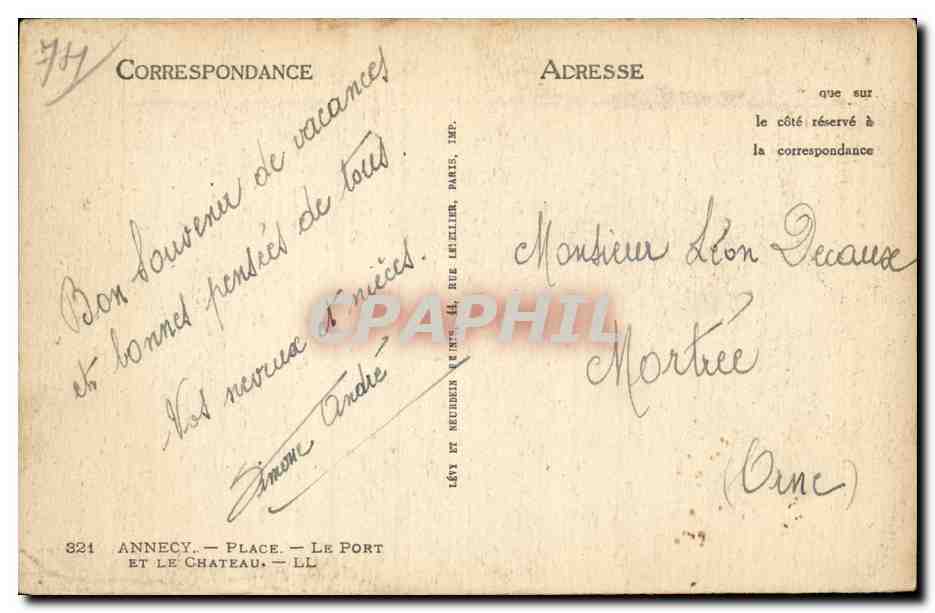 74
CORRESPONDANCE
ADRESSE
que sur
le côté réservé à
la correspondance
Bon Souvenir de vacances
et bonnes pensées de tous.
Vos neveux et nièces.
Simone André
LÉVY ET NEURDEIN RÉUNIS, 44, RUE LETELLIER, PARIS, IMP.
Monsieur Léon Decaux
Mortrée
(Orne)
CPAPHIL
321 ANNECY. — PLACE. — LE PORT
ET LE CHATEAU. — LL